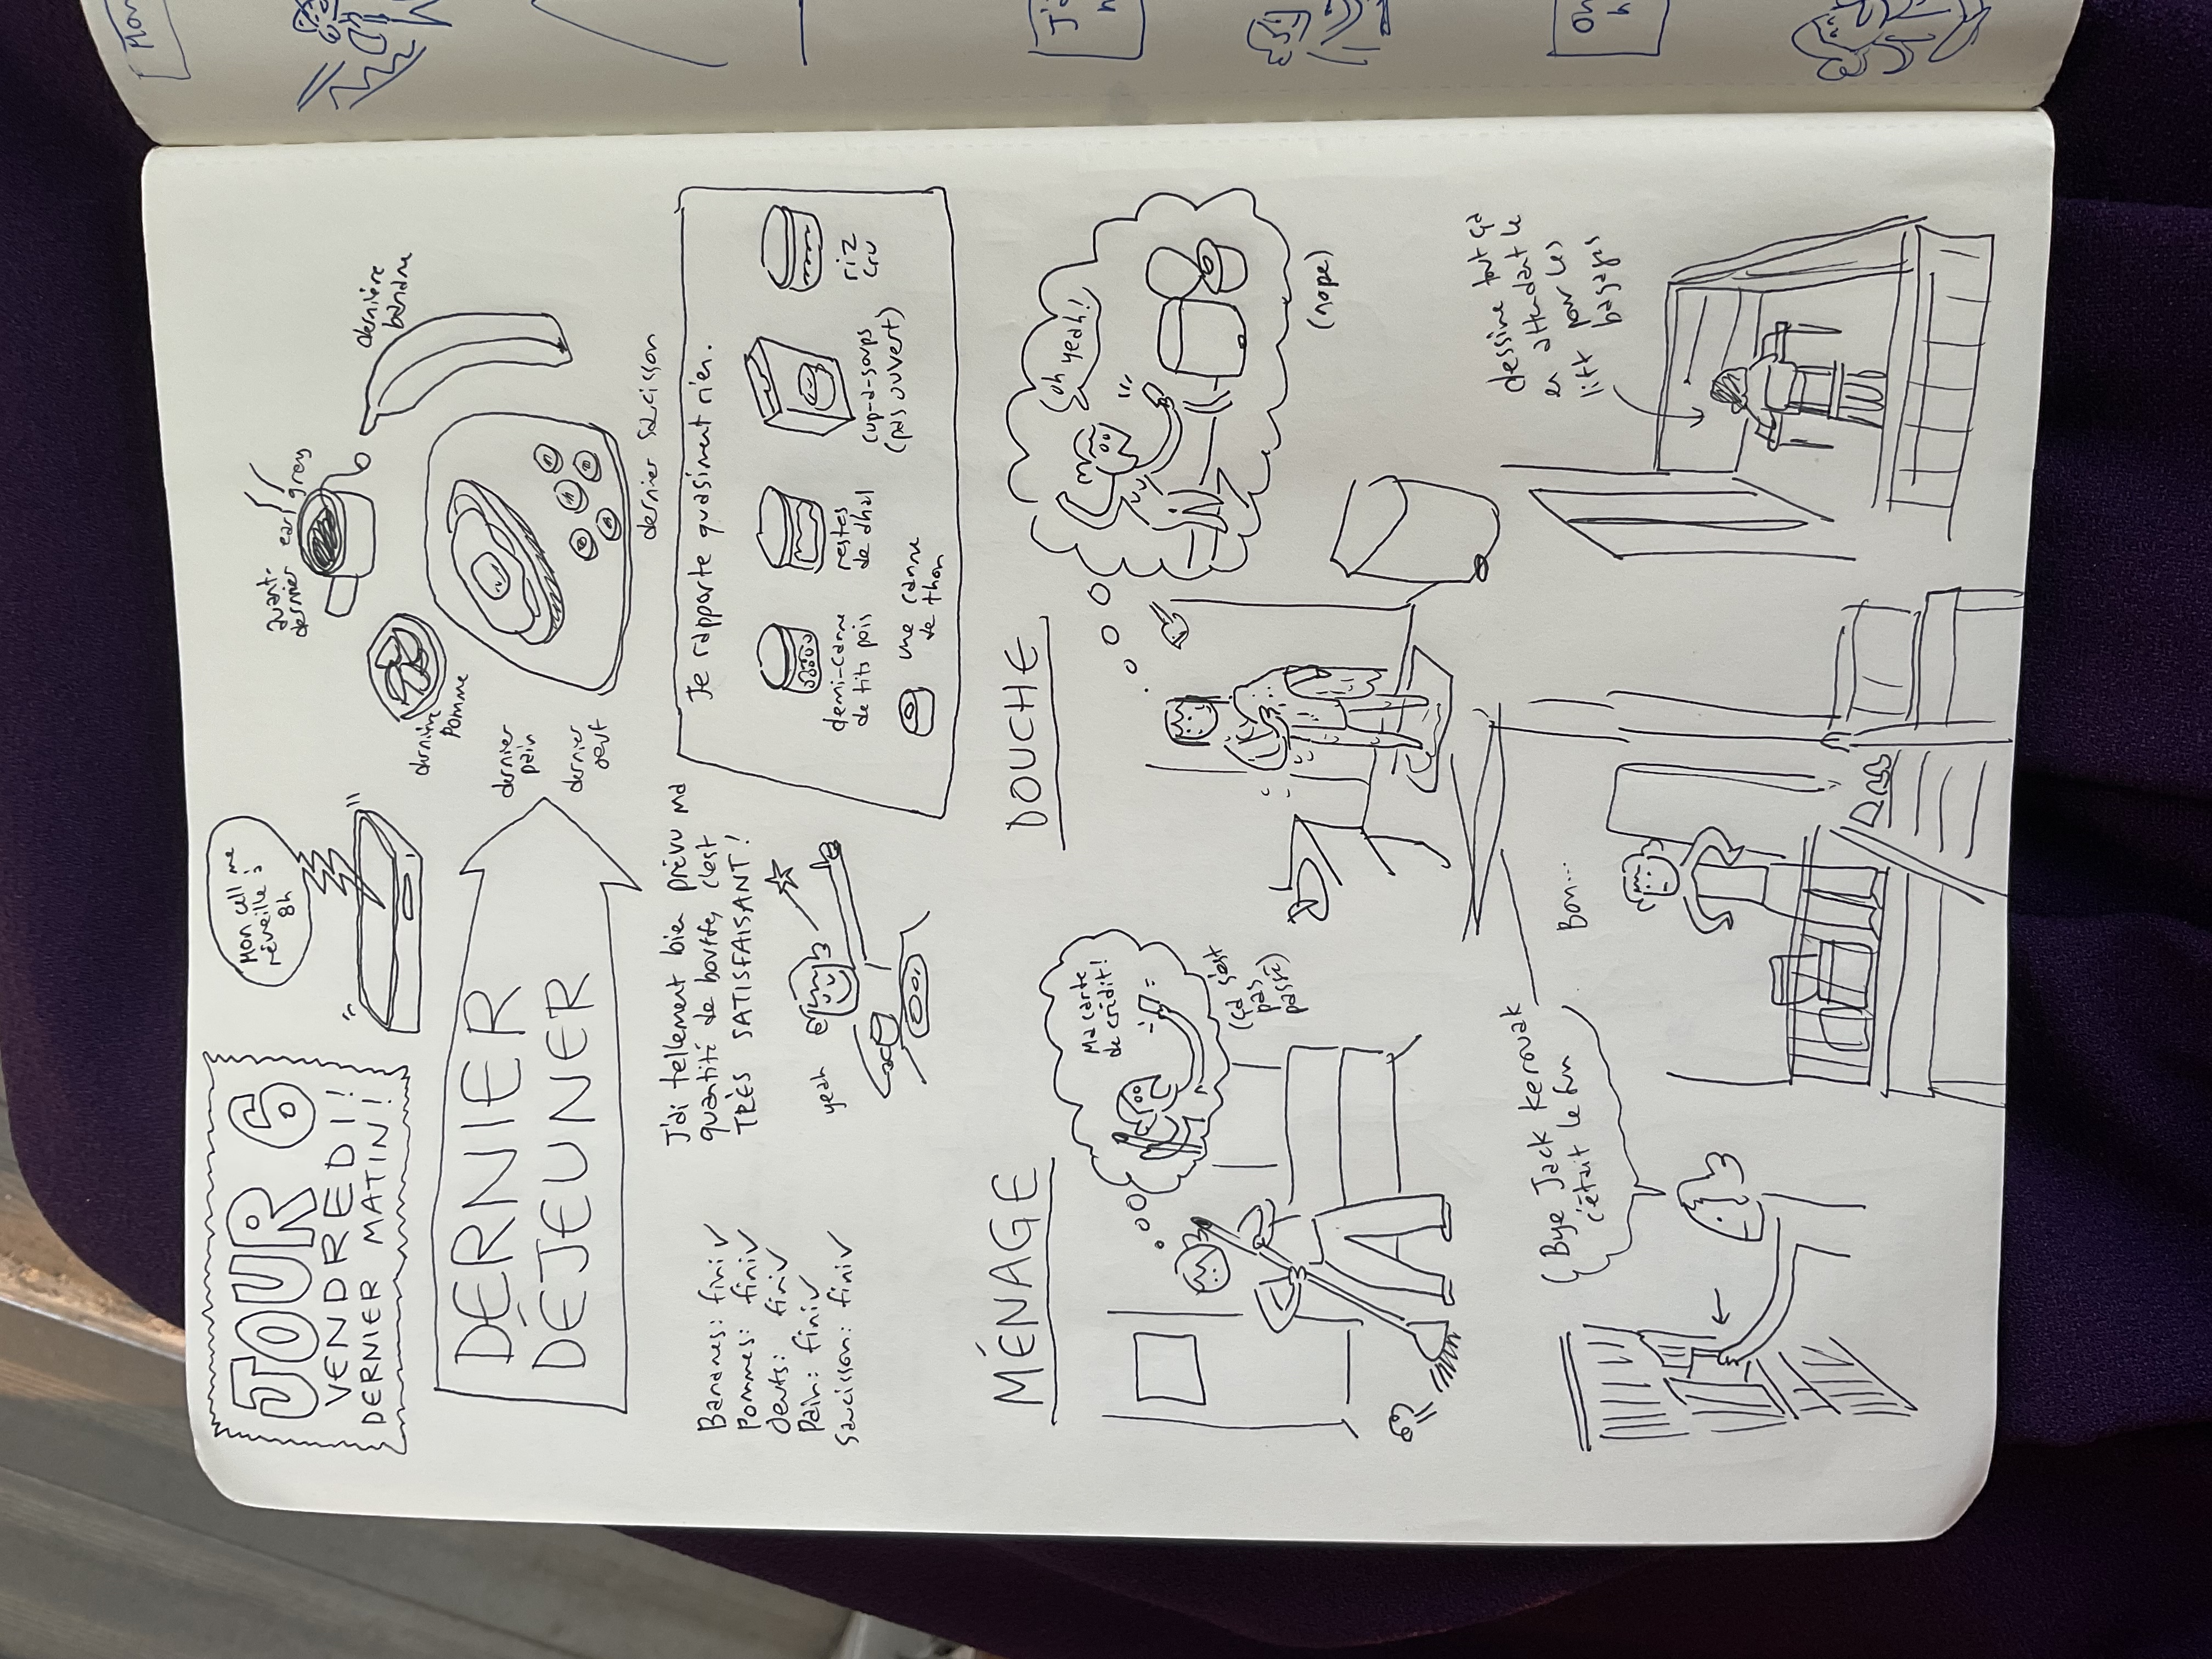 JOUR 6
VENDREDI!
DERNIER MATIN!
Mon cell me
réveille à
8h
avant-
dernier
earl grey
dernière
banane
dernière
pomme
DERNIER
DÉJEUNER
dernier
pain
dernier
oeuf
dernier saucisson
Bananes: fini ✓
Pommes: fini ✓
Oeufs: fini ✓
Pain: fini ✓
Saucisson: fini ✓
J'ai tellement bien prévu ma
quantité de bouffe, c'est
TRÈS SATISFAISANT!
yeah
Je rapporte quasiment rien.
demi-canne
de tits pois
restes
de dhal
cup-a-soups
(pas ouvert)
riz
cru
une canne
de thon
MÉNAGE
Ma carte
de crédit!
(ça s'est
pas
passé)
DOUCHE
oh yeah!
(nope)
Bye Jack Kerouak
c'était le fun
Bon...
dessine tout ça
en attendant le
lift pour les
bagages
Mon
J'a
On